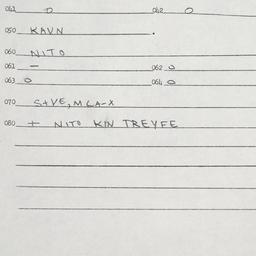 041 0 042 0
050 KAVN .
060 NITO
061 - 062 0
063 0 064 0
070 S+VE, MLA-X
080 + NITO KIN TREYFE